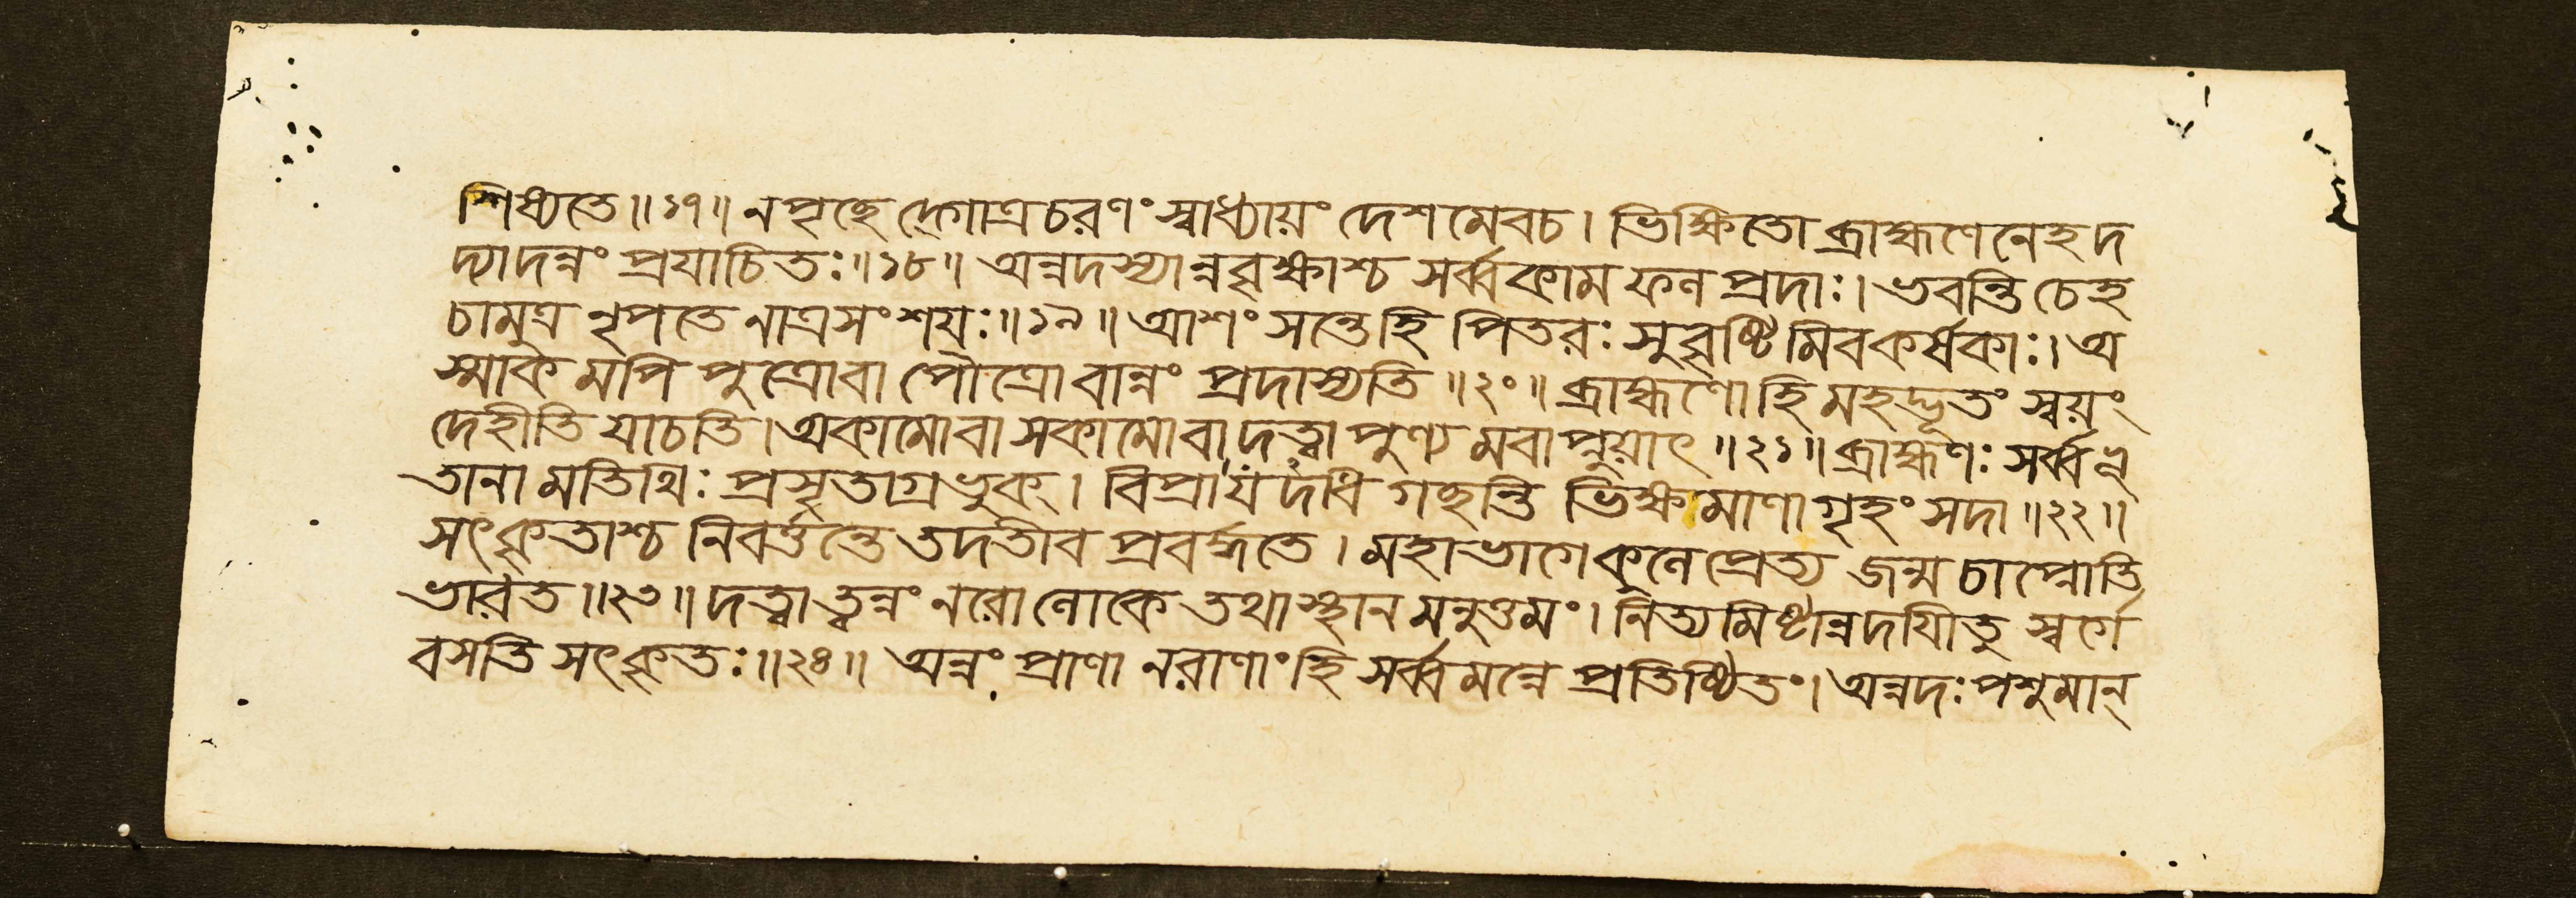 শিষ্যতে॥১৭॥ ন পৃচ্ছেদ্গোত্রচরণং স্বাধ্যায়ং দেশমেবচ। ভিক্ষিতো ব্রাহ্মণেনেহ দ
দ্যাদন্নং প্রযাচিতঃ॥১৮॥ অন্নদস্যান্নবৃক্ষাশ্চ সর্ব্বকামফলপ্রদাঃ। ভবন্তি চেহ
চামুত্র নৃপতে নাত্রসংশয়ঃ॥১৯॥ আশংসন্তেহি পিতরঃ সুবৃষ্টিমিবকর্ষকাঃ। অ
স্মাকমপি পুত্রোবা পৌত্রোবান্নং প্রদাস্যতি॥২০॥ ব্রাহ্মণোহি মহদ্ভূতং স্বয়ং
দেহীতি যাচতি। অকামোবা সকামোবা দত্ত্বা পুণ্যমবাপ্নুয়াৎ॥২১॥ ব্রাহ্মণঃ সর্ব্বভূ
তানামতিথিঃ প্রসৃতাগ্রভুক্। বিপ্রা যদধিগচ্ছন্তি ভিক্ষমাণা গৃহং সদা॥২২॥
সৎকৃতাশ্চ নিবর্ত্তন্তে তদতীব প্রবর্দ্ধতে। মহাভাগেকুলে প্রেত্য জন্ম চাপ্নোতি
ভারত॥২৩॥ দত্ত্বা ত্বন্নং নরোলোকে তথাস্থানমনুত্তমং। নিত্যমিষ্টান্নদয়ীতু স্বর্গে
বসতি সৎকৃতঃ॥২৪॥ অন্নং প্রাণা নরাণাংহি সর্ব্বমন্নে প্রতিষ্ঠিতং। অন্নদঃ পশুমান্